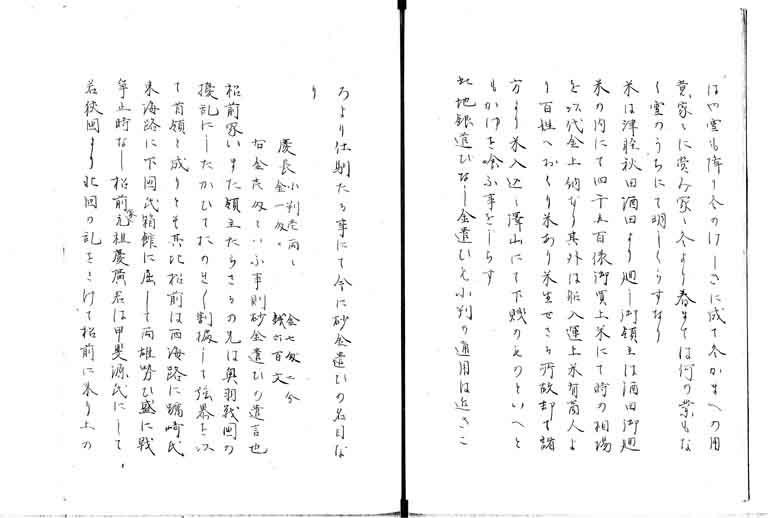 はや雪も降り冬のけしきに成て冬かまへの用
意家々に営み家々冬より春まては何の業もな
く雪のうちにて明しくらすなり
米は津軽秋田酒田より廻し御領主は酒田御廻
米の内にて四千五百俵御買上米にて時の相場
を以代金上納なり其外は船入運上米有商人よ
り百姓へおくり米あり米生せさる所故却て諸
方より米入込み沢山にて下賤のものといへと
もかけを喰ふ事をしらす
此地銀遣ひなし金遣ひも小判の通用は近きこ
ろより仕馴たる事にて今に砂金遣ひの名目な
り
慶長小判壱両と 金七匁二分
金一匁と 銭六百文
右金壱匁といふ事則砂金遣ひの遺言也
松前家いまた領主たらさるの先は奥羽戦国の
擾乱にしたかひておのもく割拠して強暴を以
て首領と成りとそ其比松前は西海路に蠣崎氏
東海路に下国氏箱館に居して両雄勢ひ盛に戦
争止時なし松前家元祖慶廣君は甲斐源氏にして
若狭国より北国の乱をさけて松前に来り上の